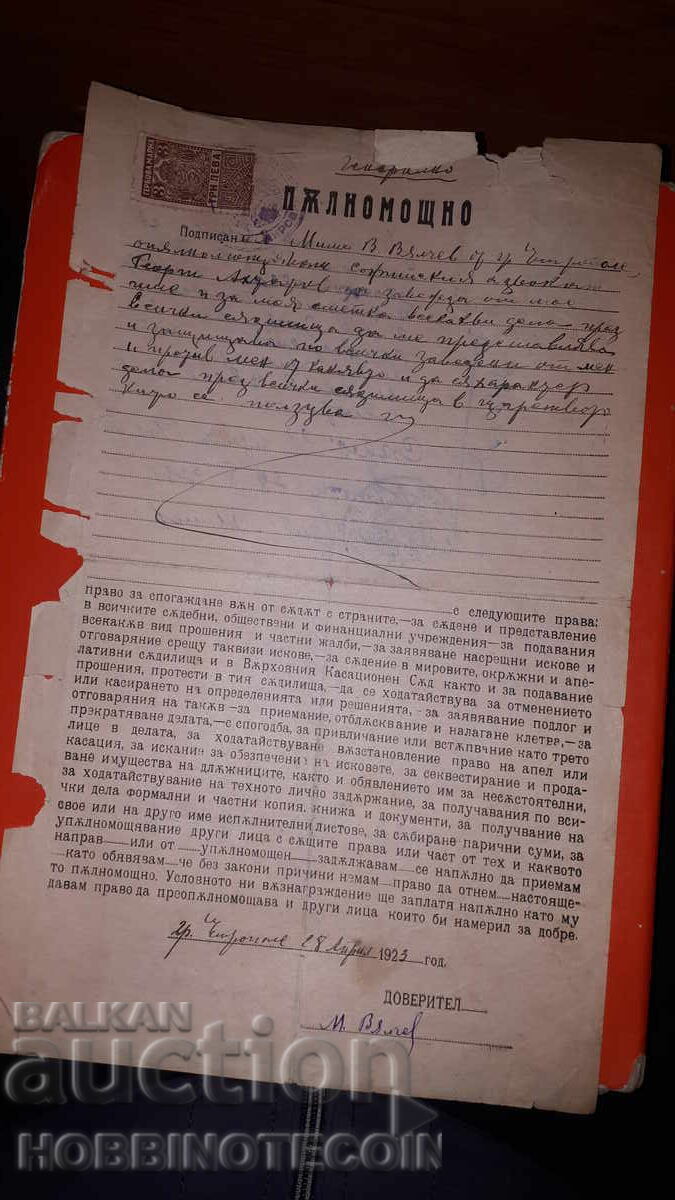 ГЕРБОВА МАРКА
3 3
ТРИ ЛЕВА
Генерално
ПѪЛНОМОЩНО
Подписан Мишо В. Вѫлчев
Софийския адвокат
Георги да завежда от мое
име и за моя сметка всекакви дела пред
всички сѫдилища да ме представлява
и защищава по всички заведени от мен
и против мен и да сѫ характер
дела пред всички сѫдилища в
ползува
с следующите права:
право за спогаждане вѫн от сѫдѫт с страните,—за сѫдене и представление
в всичките сѫдебни, обществени и финанциални учреждения—за подавания
всекакѫв вид прошения и частни жалби,—за заявяване насрещни искове и
отговаряние срещу таквизи искове,—за сѫдение в мировите, окрѫжни и апе-
лативни сѫдилища и в Вѫрховния Касационен Сѫд както и за подавание
прошения, протести в тия сѫдилища,—да се ходатайствува за отменението
или касирането на определенията или решенията,—за заявявание подлог и
отговаряния на такѫв—за приемание, отблѫсквание и налагане клетва,—за
прекратяване делата,—с спогодба, за привличание или встѫпвание като трето
лице в делата, за ходатайствувание вѫзстановление право на апел или
касация, за искание за обезпечение на исковете, за секвестирание и прода-
ване имуществa на длѫжниците, както и обявлението им за несѫстоятелни,
за ходатайствувание на техното лично задѫржание, за получавания по вси-
чки дела формални и частни копия, книжа и документи, за получвание на
свое или на друго име испѫлнителни листове, за сѫбиране парични суми, за
упѫлномощявание други лица с сѫщите права или част от тех и каквото
направ или от упѫлномощен задѫлжавам се напѫлно да приемам
като обявявам че без закони причини немам право да отнем настояще-
то пѫлномощно. Условното ни вѫзнаграждение ще заплатя напѫлно като му
давам право да преопѫлномощава и други лица които би намерил за добре.
гр. 28 Април 1923 год.
ДОВЕРИТЕЛ
М. Вѫлчев
BALKAN
auction
HOBBINOTECOIN